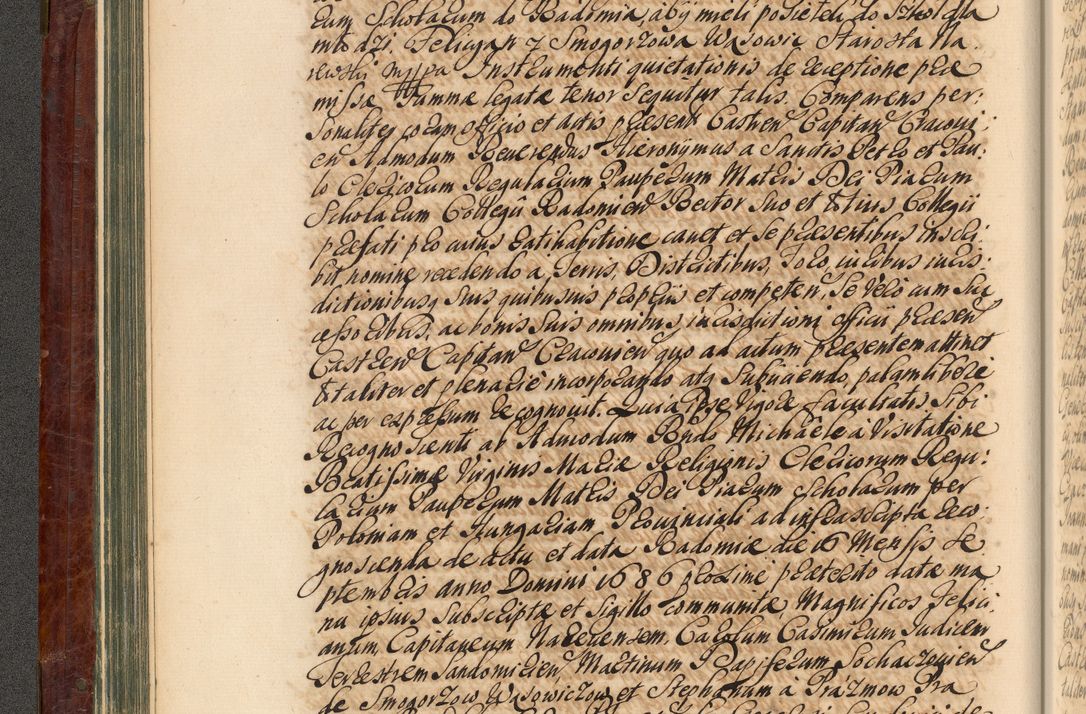 rum Scholarum do Radomia, aby mieli posieteli do Szkoł dla
młodzi. Felicyan z Smogorzowa Wąsowic Starosta Na,
rewski mppa Instrumenti quietationis de receptione præ
missæ Summæ legatæ tenor sequitur talis. Comparens per:
sonaliter coram officio et actis præsen Castren Capitan Cracovi:
en Admodum Reverendus Hieronymus a Sanctis Petro et Pau:
lo Clericorum Regularium Pauperum Matris Dei Piarum
Scholarum Collegii Radomien Rector suo et totius Collegii
præfati pro cuius ratihabitione cavet et se præsentibus inscri:
bit nomine recedendo à Terris, Districtibus, Foro, iuribus iuris:
dictionibusq suis quibusvis propriis et competen, Se vero cum suc
cessoribus, ac bonis suis omnibus, iurisdictioni officii præsen
Castren Capitan Cracovien quo ad actum præsentem attinet
totaliter et plenarie incorporando atq subiiciendo, palam libere
ac per expressum recognovit. Quia Ipse vigore facultatis Sibi
Recognoscenti ab Admodum Rndo Michaele à Visitatione
Beatissimæ Virginis Mariæ Religionis Clericorum Regu:
larium Pauperum Matris Dei Piarum Scholarum per
Poloniam et Hungariam Provinciali ad infrascripta reco:
gnoscenda de actu et data Radomiæ die 16 Mensis Se
ptembris anno Domini 1686 proxime præterito datæ ma
nu ipsius subscriptæ et Sigillo communitæ, Magnificos Felici:
anum Capitaneum Narevensem, Carolum Casimirum Judicem
Terrestrem Sandomirien, Martinum Dapiferum Sochaczovien
de Smogorzow Wąsowiczow et Stephanum à Prazmow Pra